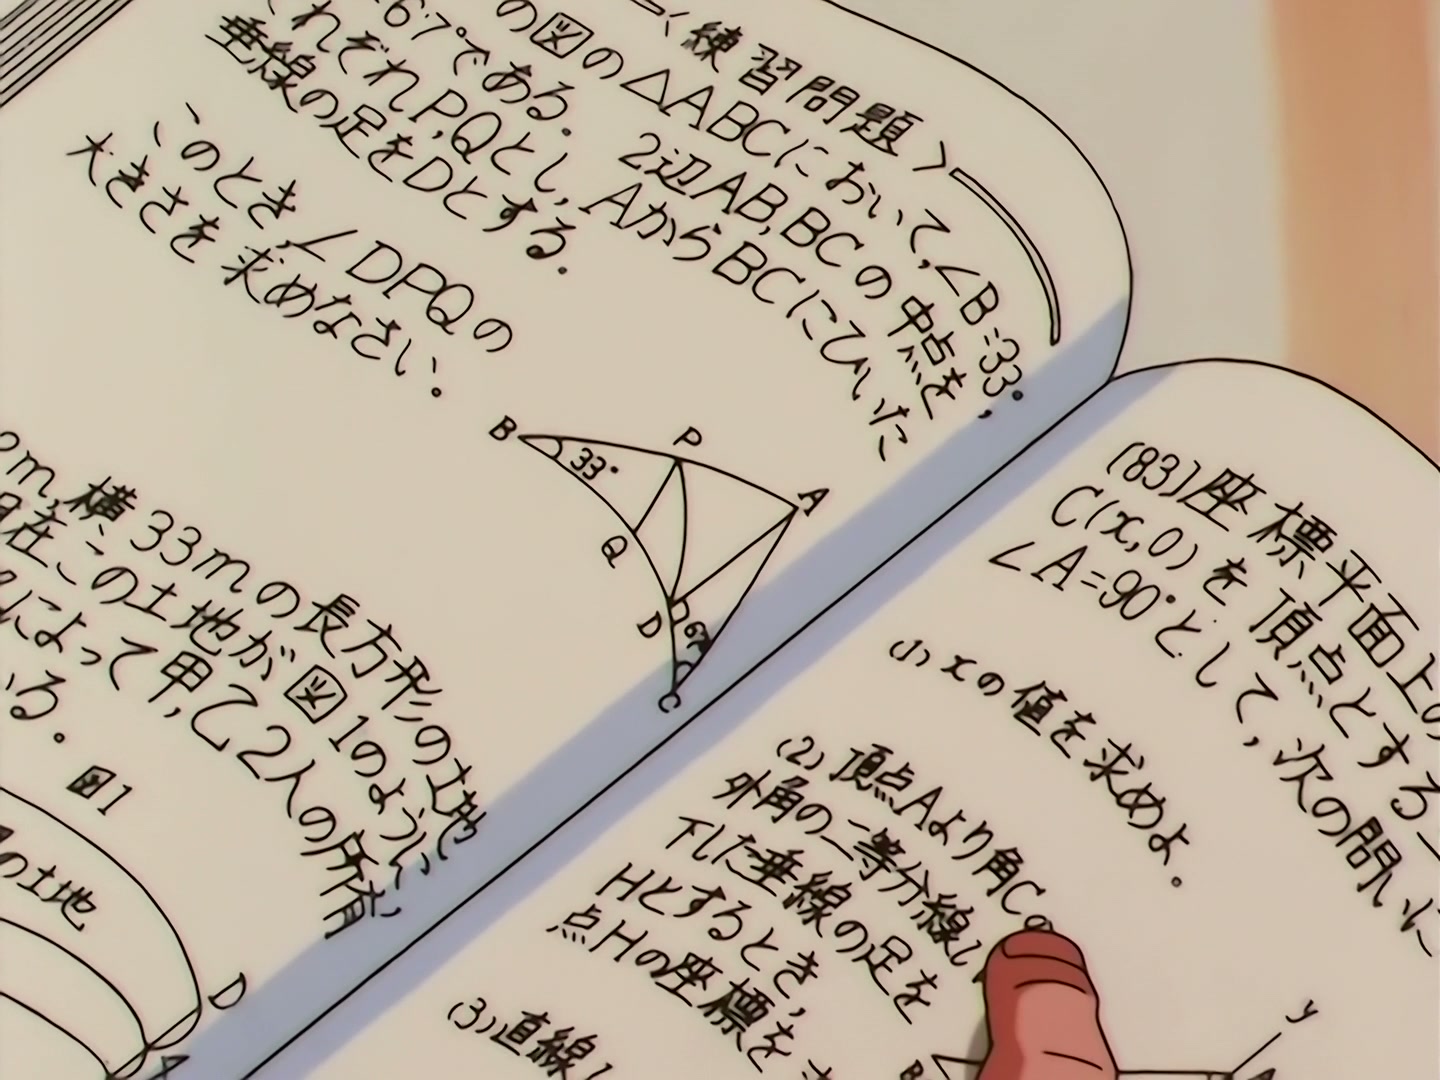 〈練習問題〉
の図の△ABCにおいて,∠B=33°,
67°である。 2辺AB,BCの中点を
れぞれP,Qとし,AからBCにひいた
垂線の足をDとする。
このとき,∠DPQの
大きさを求めなさい。
B
33°
P
A
Q
D
67°
C
2m,横33mの長方形の土地
現在この土地が図1のように
によって甲,乙2人の所有
いる。
図1
の土地
D
A
(83)座標平面上の
C(x,0)を頂点とする
∠A=90°として,次の問いに
(1)xの値を求めよ。
(2)頂点Aより角Cの
外角の二等分線し
下した垂線の足を
Hとするとき,
点Hの座標を
(3)直線
B
y
A